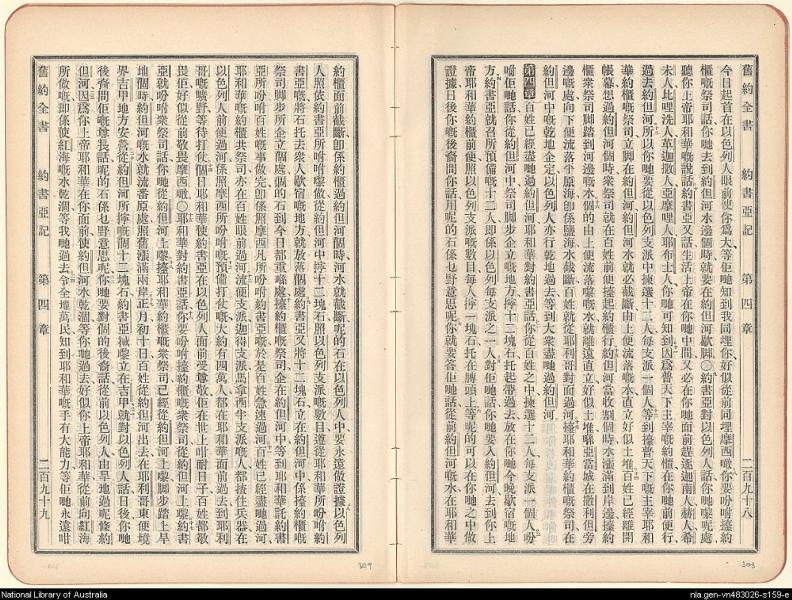 舊約全書 約書亞記 第四章 二百九十八
今日起首在以色列人眼前使你爲大等佢哋知到我同埋你好似從前同埋摩西噉你要吩咐擡約
櫃嘅祭司話你哋去到約但河水邊個時就要在約但河歇脚○約書亞對以色列人話你哋嚟呢處
聽你上帝耶和華嘅說話約書亞又話生活上帝在你哋中間又必在你哋面前趕逐迦南人赫人希
未人比哩洗人革迦撒人亞摩哩人耶布士人你哋可知到因爲普天下主宰嘅約櫃在你哋前便行
過去約但河所以你哋要從以色列支派中揀選十二人每支派一個人等到擡普天下嘅主宰耶和
華約櫃嘅祭司立脚在約但河約但河水就必截斷由上便流落嘅水直立好似土堆百姓已經離開
帳幕想過約但河個時衆祭司就在百姓前便擡起約櫃行約但河當收割個時水漲滿到岸邊擡約
櫃衆祭司脚踏到河邊嘅水個的由上便流落嚟嘅水就離遠直立好似土堆喺亞當城在撒利但旁
邊嘅處向下便流落平原海卽係鹽海水截斷百姓就從耶利哥對面過河擡耶和華約櫃嘅祭司在
約但河中嘅乾地企定以色列人亦行乾地過去等到大衆盡哋過約但河
第四章 百姓已經盡哋過約但河耶和華對約書亞話你從百姓之中揀選十二人每支派一個人吩
咐佢哋話你從約但河中祭司脚步企立嘅地方擰十二塊石托起帶過去放在你哋今晚歇宿嘅地
方約書亞就召所預備嘅十二人卽係以色列每支派之一人對佢哋話你哋要入約但河去到你上
帝耶和華約櫃前便照以色列支派嘅數目每人擰一塊石托在膊頭上等呢的可以在你哋之中做
證據日後你嘅後裔問你話用呢的石係乜野意思呢你就要答佢哋話從前約但河嘅水在耶和華
303
約櫃面前截斷卽係約櫃過約但河個時河水就截斷呢的石在以色列人中要永遠做證據以色列
人照依約書亞所吩咐嚟做從約但河中擰十二塊石照以色列支派嘅數目遵從耶和華所吩咐約
書亞嘅將石托去衆人歇宿嘅地方就放落個處約書亞又將十二塊石立在約但河中係擡約櫃
祭司脚步所企立個處個的石到今日都重喺處擡約櫃嘅祭司企在約但河中等到耶和華託約書
亞所吩咐百姓嘅事做完卽係照摩西凡所吩咐約書亞嘅於是百姓急速過河百姓已經盡哋過河
耶和華嘅約櫃共祭司亦在百姓眼前過河流便支派迦得支派馬拿西半支派嘅人都披住兵器在
以色列人前便過河係照摩西所吩咐嘅預備打仗嘅大約有四萬人都在耶和華面前過去到耶利
哥嘅曠野等待打仗個日耶和華使約書亞在以色列人面前受尊敬佢在世上咁耐日子百姓都敬
畏佢好似從前敬畏摩西噉○耶和華對約書亞話你要吩咐擡約櫃嘅衆祭司從約但河上嚟約書
亞就吩咐衆祭司話你哋從約但河上嚟擡耶和華約櫃嘅衆祭司已經從約但河上嚟脚步踏上旱
地個時約但河嘅水就流番原處照舊漲滿兩岸正月初十日百姓從約但河出去在耶利哥東便境
界吉甲地方安營從約但河所擰嘅個十二塊石約書亞𠹌嚟立在吉甲就對以色列人話日後你哋
後裔問佢嘅尊長話呢的石係乜野意思呢你哋要對個的後裔話從前以色列人由旱地過呢條約
但河因爲你上帝耶和華在你面前使約但河水乾涸等你哋過去好似你上帝耶和華從前向紅海
所做嘅卽係使紅海嘅水乾涸等我哋過去令全地萬民知到耶和華嘅手有大能力等佢哋永遠咁
舊約全書 約書亞記 第四章 二百九十九
307
National Library of Australia
nla.gen-vn483026-s159-e